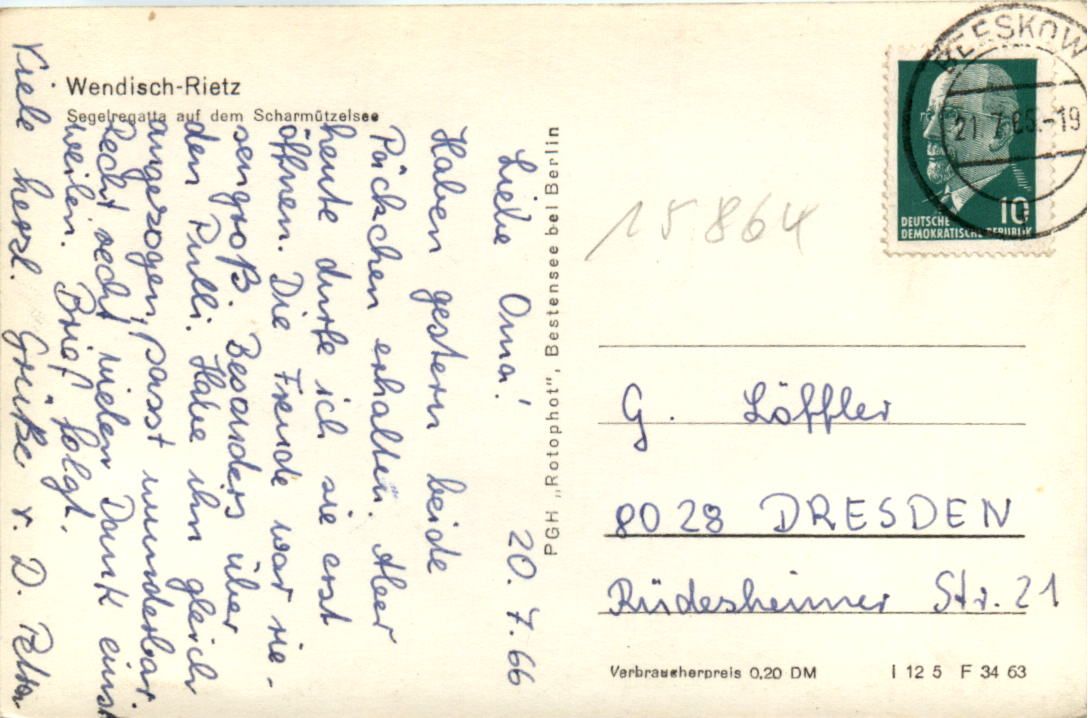 Wendisch-Rietz
Segelregatta auf dem Scharmützelsee
Liebe Oma! 20.7.66
Haben gestern beide
Päckchen erhalten. Aber
heute durfte ich sie erst
öffnen. Die Freude war rie-
sengroß. Besonders über
den Pulli. Habe ihn gleich
angezogen, passt wunderbar.
Recht recht vielen Dank einst
weilen. Brief folgt.
Viele herzl. Grüße v. D. Peter
PGH „Rotophot", Bestensee bei Berlin
15864
BEESKOW
21.7.66.-19
DEUTSCHE
DEMOKRATISCHE REPUBLIK
10
G. Löffler
8028 DRESDEN
Rüdesheimer Str. 21
Verbraucherpreis 0,20 DM I 12 5 F 34 63